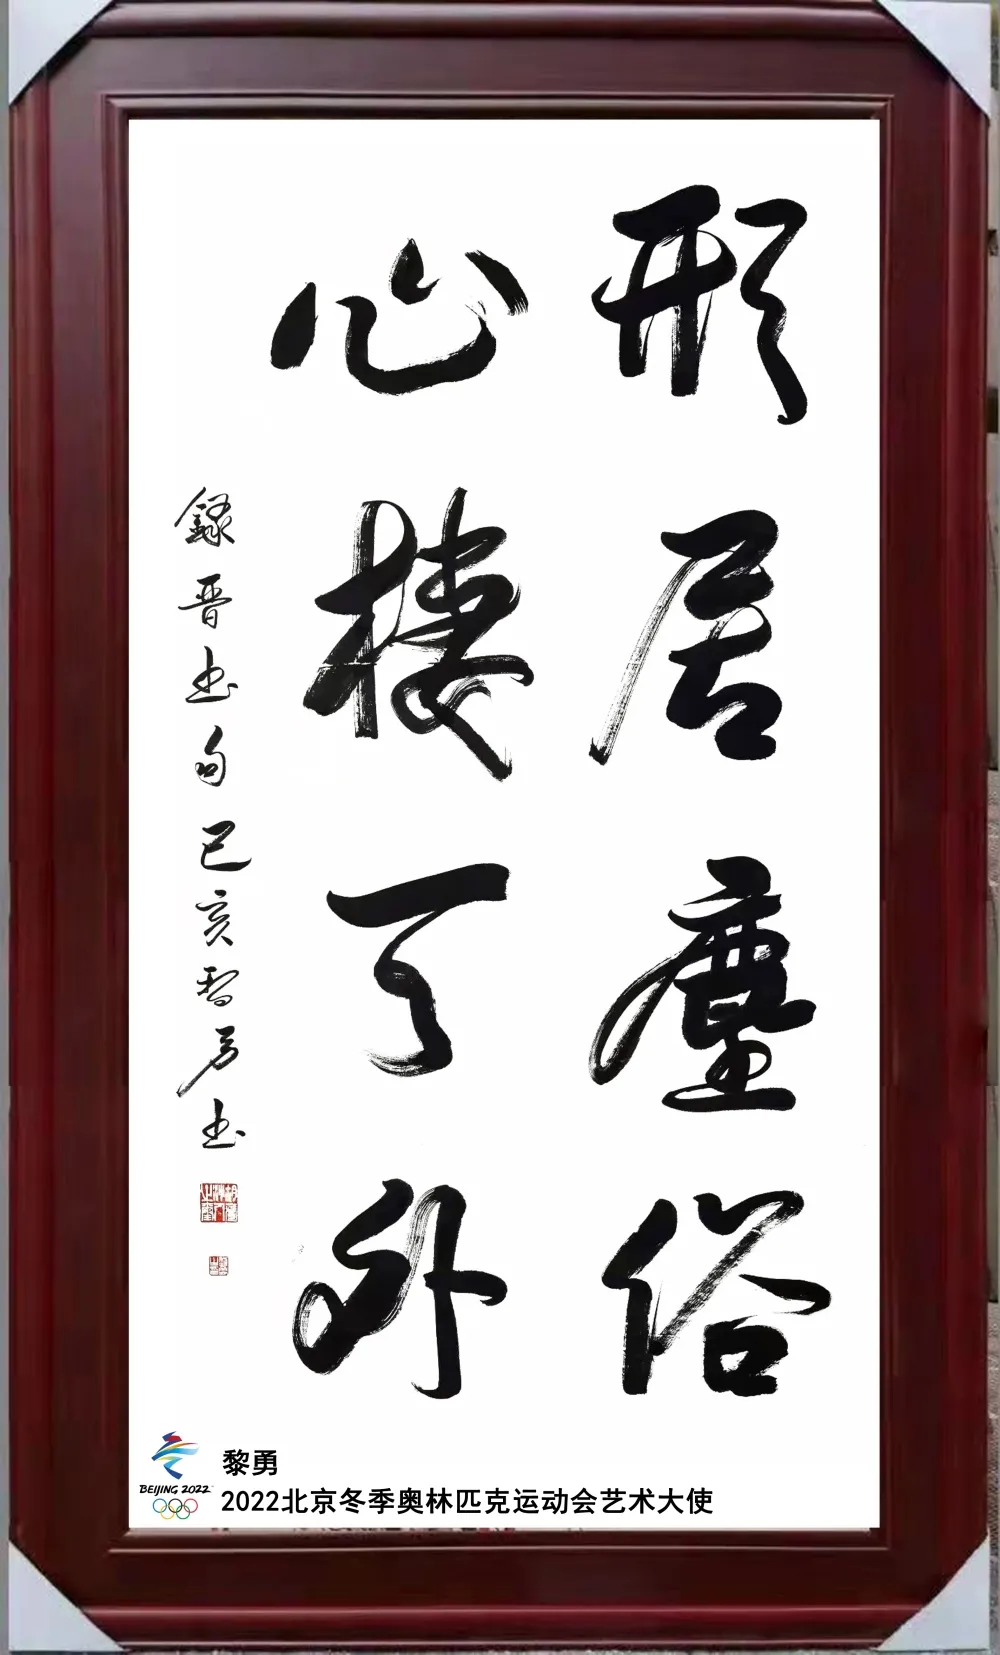 形居塵俗
心棲天外
錄晋書句己亥黎勇書
黎勇
BEIJING 2022
2022北京冬季奥林匹克运动会艺术大使